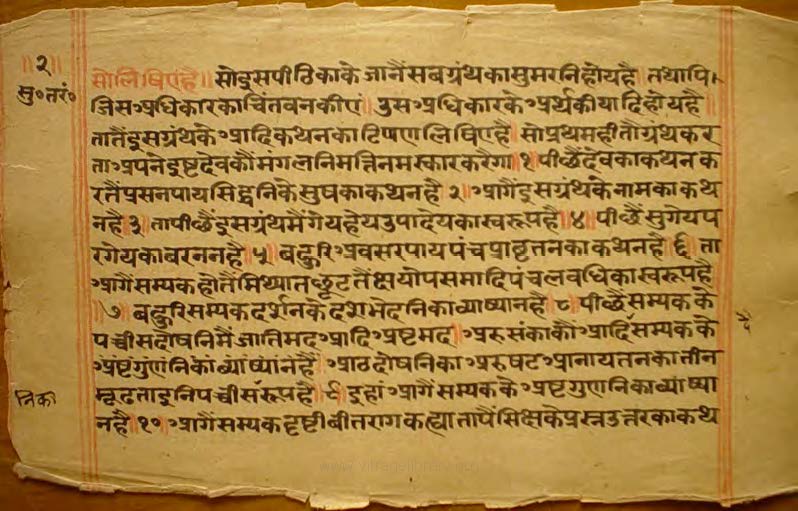 ॥२॥
सु॰तरं॰
सोलिषिएहै॥ सोइसपीठिकाके जानैंसबग्रंथकासुमरनिहोयहै तथापि।
जिसअधिकारकाचिंतवनकीएं उसअधिकारके अर्थकीयादिहोयहै
तातैंइसग्रंथके आदिकथनकाटिपणलिषिएहै सोप्रथमहीतौग्रंथकर
ताअपनेइष्टदेवकौंमंगलनिमत्तिनमस्कारकरैगा १ पीछैंदेवकाकथनक
रतैंप्रसनपायसिद्धनिकेसुषकाकथनहै २ आगैंइसग्रंथकेनामकाकथ
नहै ३ तापीछैंइसग्रंथमैंगेयहेयउपादेयकास्वरूपहै ४ पीछैंसुगेयप
रगेयकाबरननहै ५ बहुरिअवसरपायपंचप्राव्रतनकाकथनहै ६ ता
आगैंसम्यकहोतैंमिथ्यातछूटतैंक्षयोपसमादिपंचलबधिकास्वरूपहै
॥७ बहुरिसम्यकदर्शनकेदशभेदनिकाव्याष्यानहै ८ पीछैंसम्यकके
पच्चीसदोषनिमैंजातिमदआदिअष्टमद अरुसंकाकौंआदिसम्यकके
अष्टगुणनिकाव्याष्यानहै आठदोषनिका अरुषटअनायतनकातीन
मूढताइनिपच्चीसरूपहै ९ इहांआगैंसम्यकके अष्टगुणनिकाव्याष्या
त्रिका
नहै १० आगैंसम्यकदृष्टीबीतरागकह्यातापैंसिक्षकेप्रस्नउत्तरकाकथ